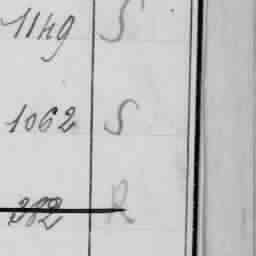 1149 S
1062 S
382 R